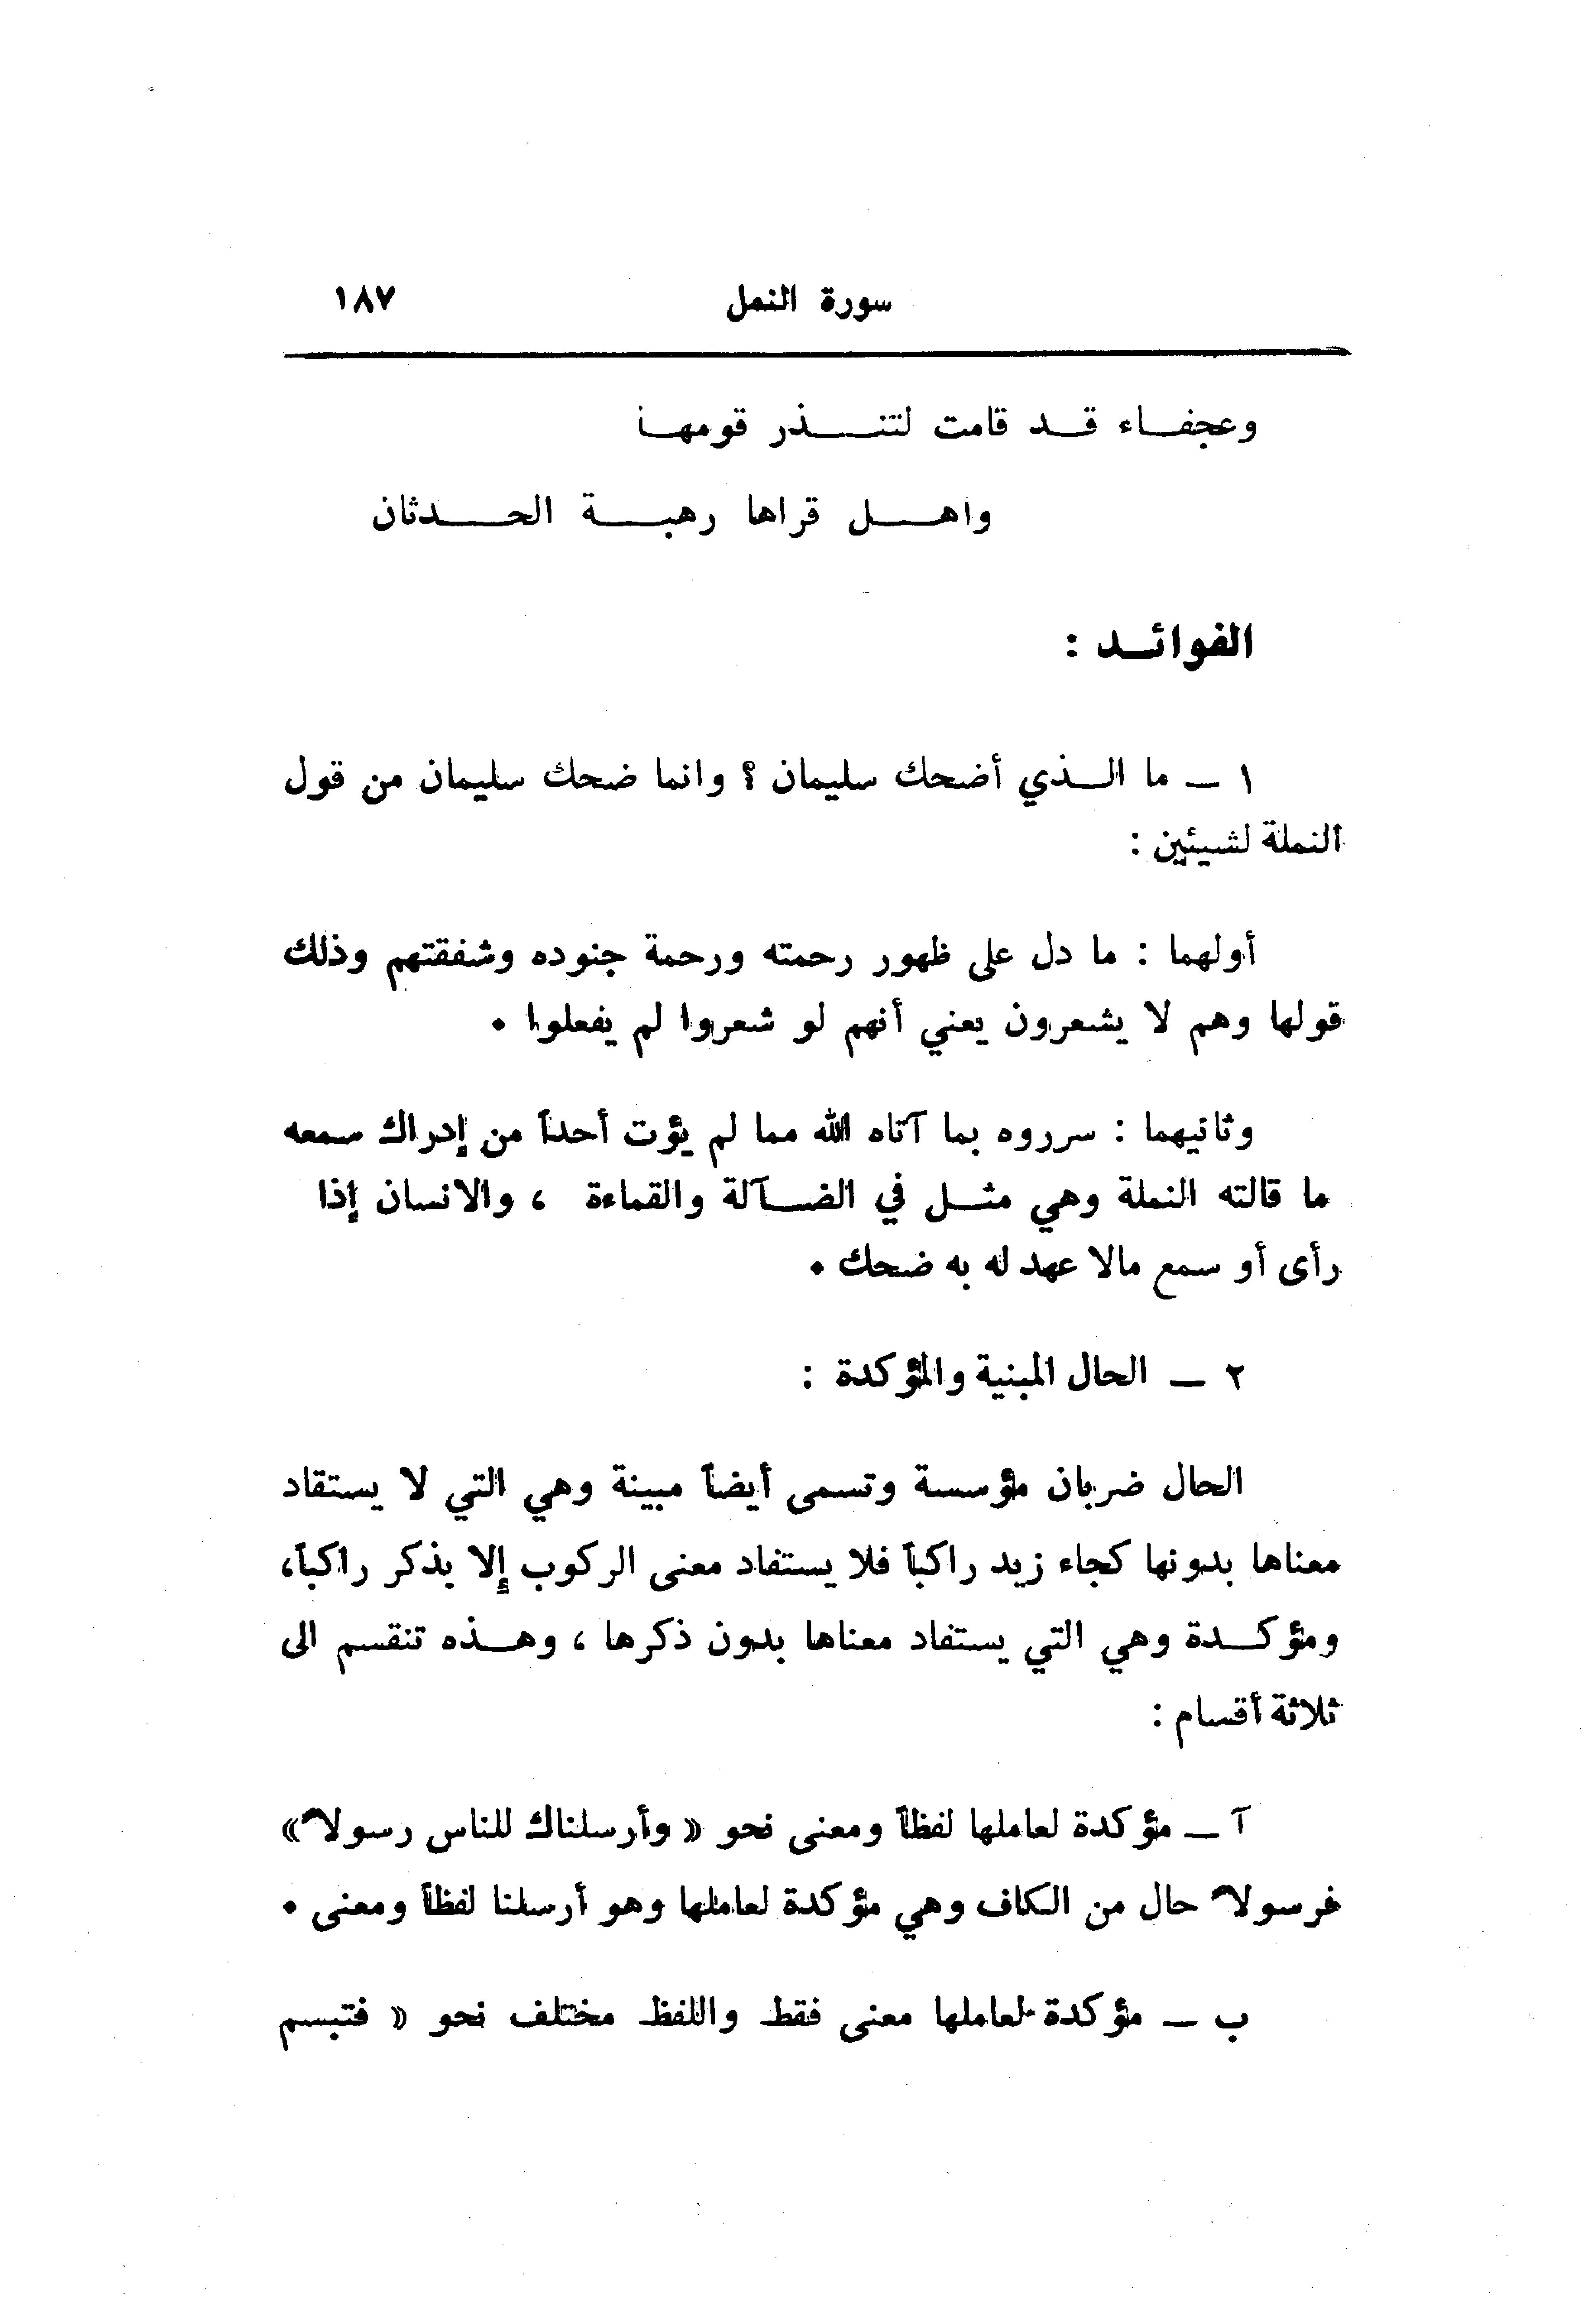 سورة النمل ١٨٧
وعجفاء قد قامت لتنذر قومها
واهل قراها رهبة الحدثان
الفوائد :
١ ــ ما الذي أضحك سليمان ؟ وانما ضحك سليمان من قول
النملة لشيئين :
أولهما : ما دل على ظهور رحمته ورحمة جنوده وشفقتهم وذلك
قولها وهم لا يشعرون يعني أنهم لو شعروا لم يفعلوا .
وثانيهما : سرروه بما آتاه الله مما لم يؤت أحداً من إدراك سمعه
ما قالته النملة وهي مثل في الضآلة والقماءة ، والانسان إذا
رأى أو سمع مالا عهد له به ضحك .
٢ ــ الحال المبنية والمؤكدة :
الحال ضربان مؤسسة وتسمى أيضاً مبينة وهي التي لا يستقاد
معناها بدونها كجاء زيد راكباً فلا يستفاد معنى الركوب إلا بذكر راكباً،
ومؤكدة وهي التي يستفاد معناها بدون ذكرها ، وهذه تنقسم الى
ثلاثة أقسام :
آ ــ مؤكدة لعاملها لفظاً ومعنى نحو « وأرسلناك للناس رسولاً»
فرسولاً حال من الكاف وهي مؤكدة لعاملها وهو أرسلنا لفظاً ومعنى .
ب ــ مؤكدة لعاملها معنى فقط واللفظ مختلف نحو « فتبسم